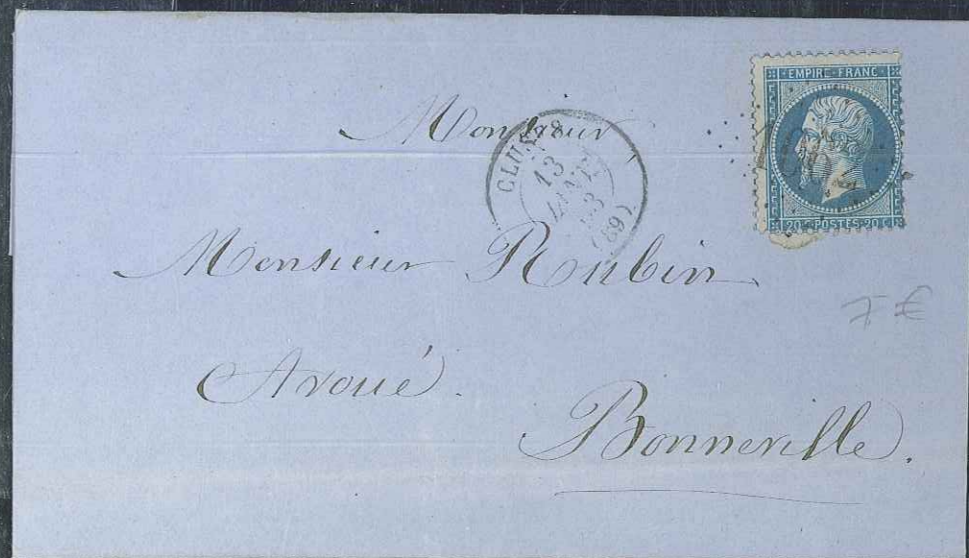 EMPIRE FRANC
20 c POSTES 20 c
Monsieur
CLUSES
13
(89)
Monsieur Rubin
7 €
Avoué.
Bonneville.